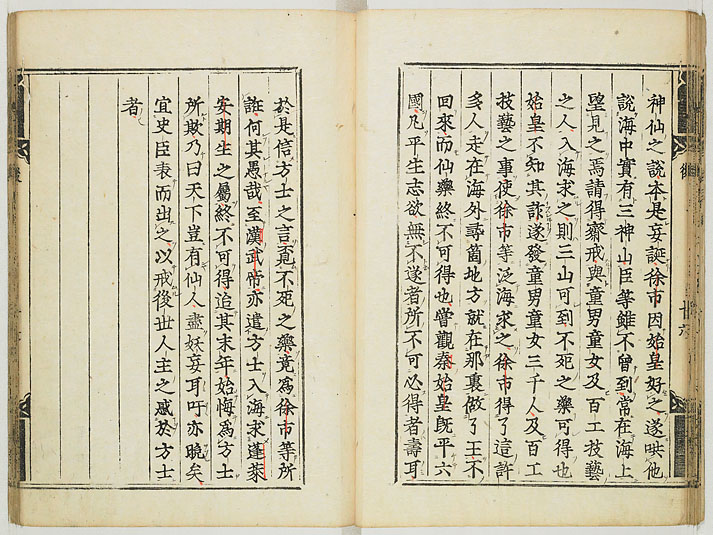 神仙之說本是妄誕徐市因始皇好之遂哄他
說海中實有三神山臣等雖不曾到常在海上
望見之焉請得齋戒與童男童女及百工技藝
之人入海求之則三山可到不死之藥可得也
始皇不知其詐遂發童男童女三千人及百工
技藝之事使徐市等泛海求之徐市得了這許
多人走在海外尋箇地方就在那裏做了王不
回來而仙藥終不可得也嘗觀秦始皇旣平六
國凡平生志欲無不遂者所不可必得者壽耳
於是信方士之言覓不死之藥竟爲徐市等所
誑何其愚哉至漢武帝亦遣方士入海求蓬萊
安期生之屬終不可得迨其末年始悔爲方士
所欺乃曰天下豈有仙人盡妖妄耳吁亦晩矣
宜史臣表而出之以戒後世人主之惑於方士
者